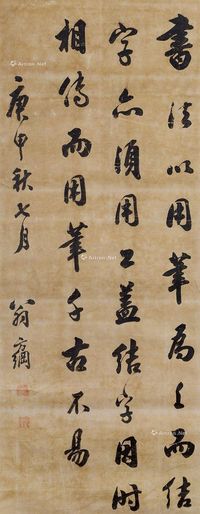 書法以用筆為上而結
字亦須用工蓋結字因時
相傳而用筆千古不易
庚申秋七月 翁
Artron.Net
Artron.Net
Artron.Net
Artron.Net